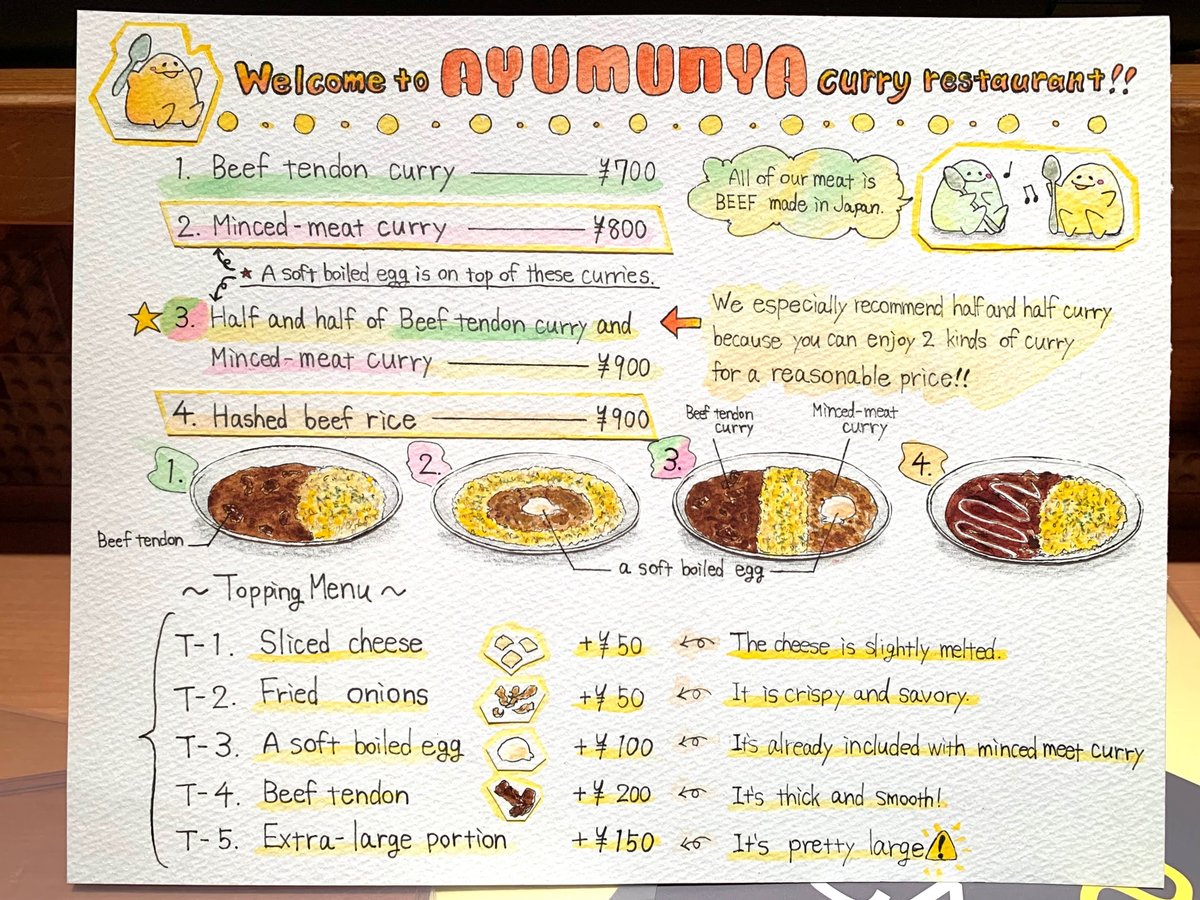 Welcome to AYUMUNYA curry restaurant!!
1. Beef tendon curry ¥700
All of our meat is
BEEF made in Japan.
2. Minced-meat curry ¥800
★ A soft boiled egg is on top of these curries.
3. Half and half of Beef tendon curry and
Minced-meat curry ¥900
We especially recommend half and half curry
because you can enjoy 2 kinds of curry
for a reasonable price!!
4. Hashed beef rice ¥900
1.
2.
3.
Beef tendon
curry
Minced-meat
curry
4.
Beef tendon
a soft boiled egg
~ Topping Menu ~
T-1. Sliced cheese +¥50 The cheese is slightly melted.
T-2. Fried onions +¥50 It is crispy and savory.
T-3. A soft boiled egg +¥100 It's already included with minced meet curry
T-4. Beef tendon +¥200 It's thick and smooth!
T-5. Extra-large portion +¥150 It's pretty large